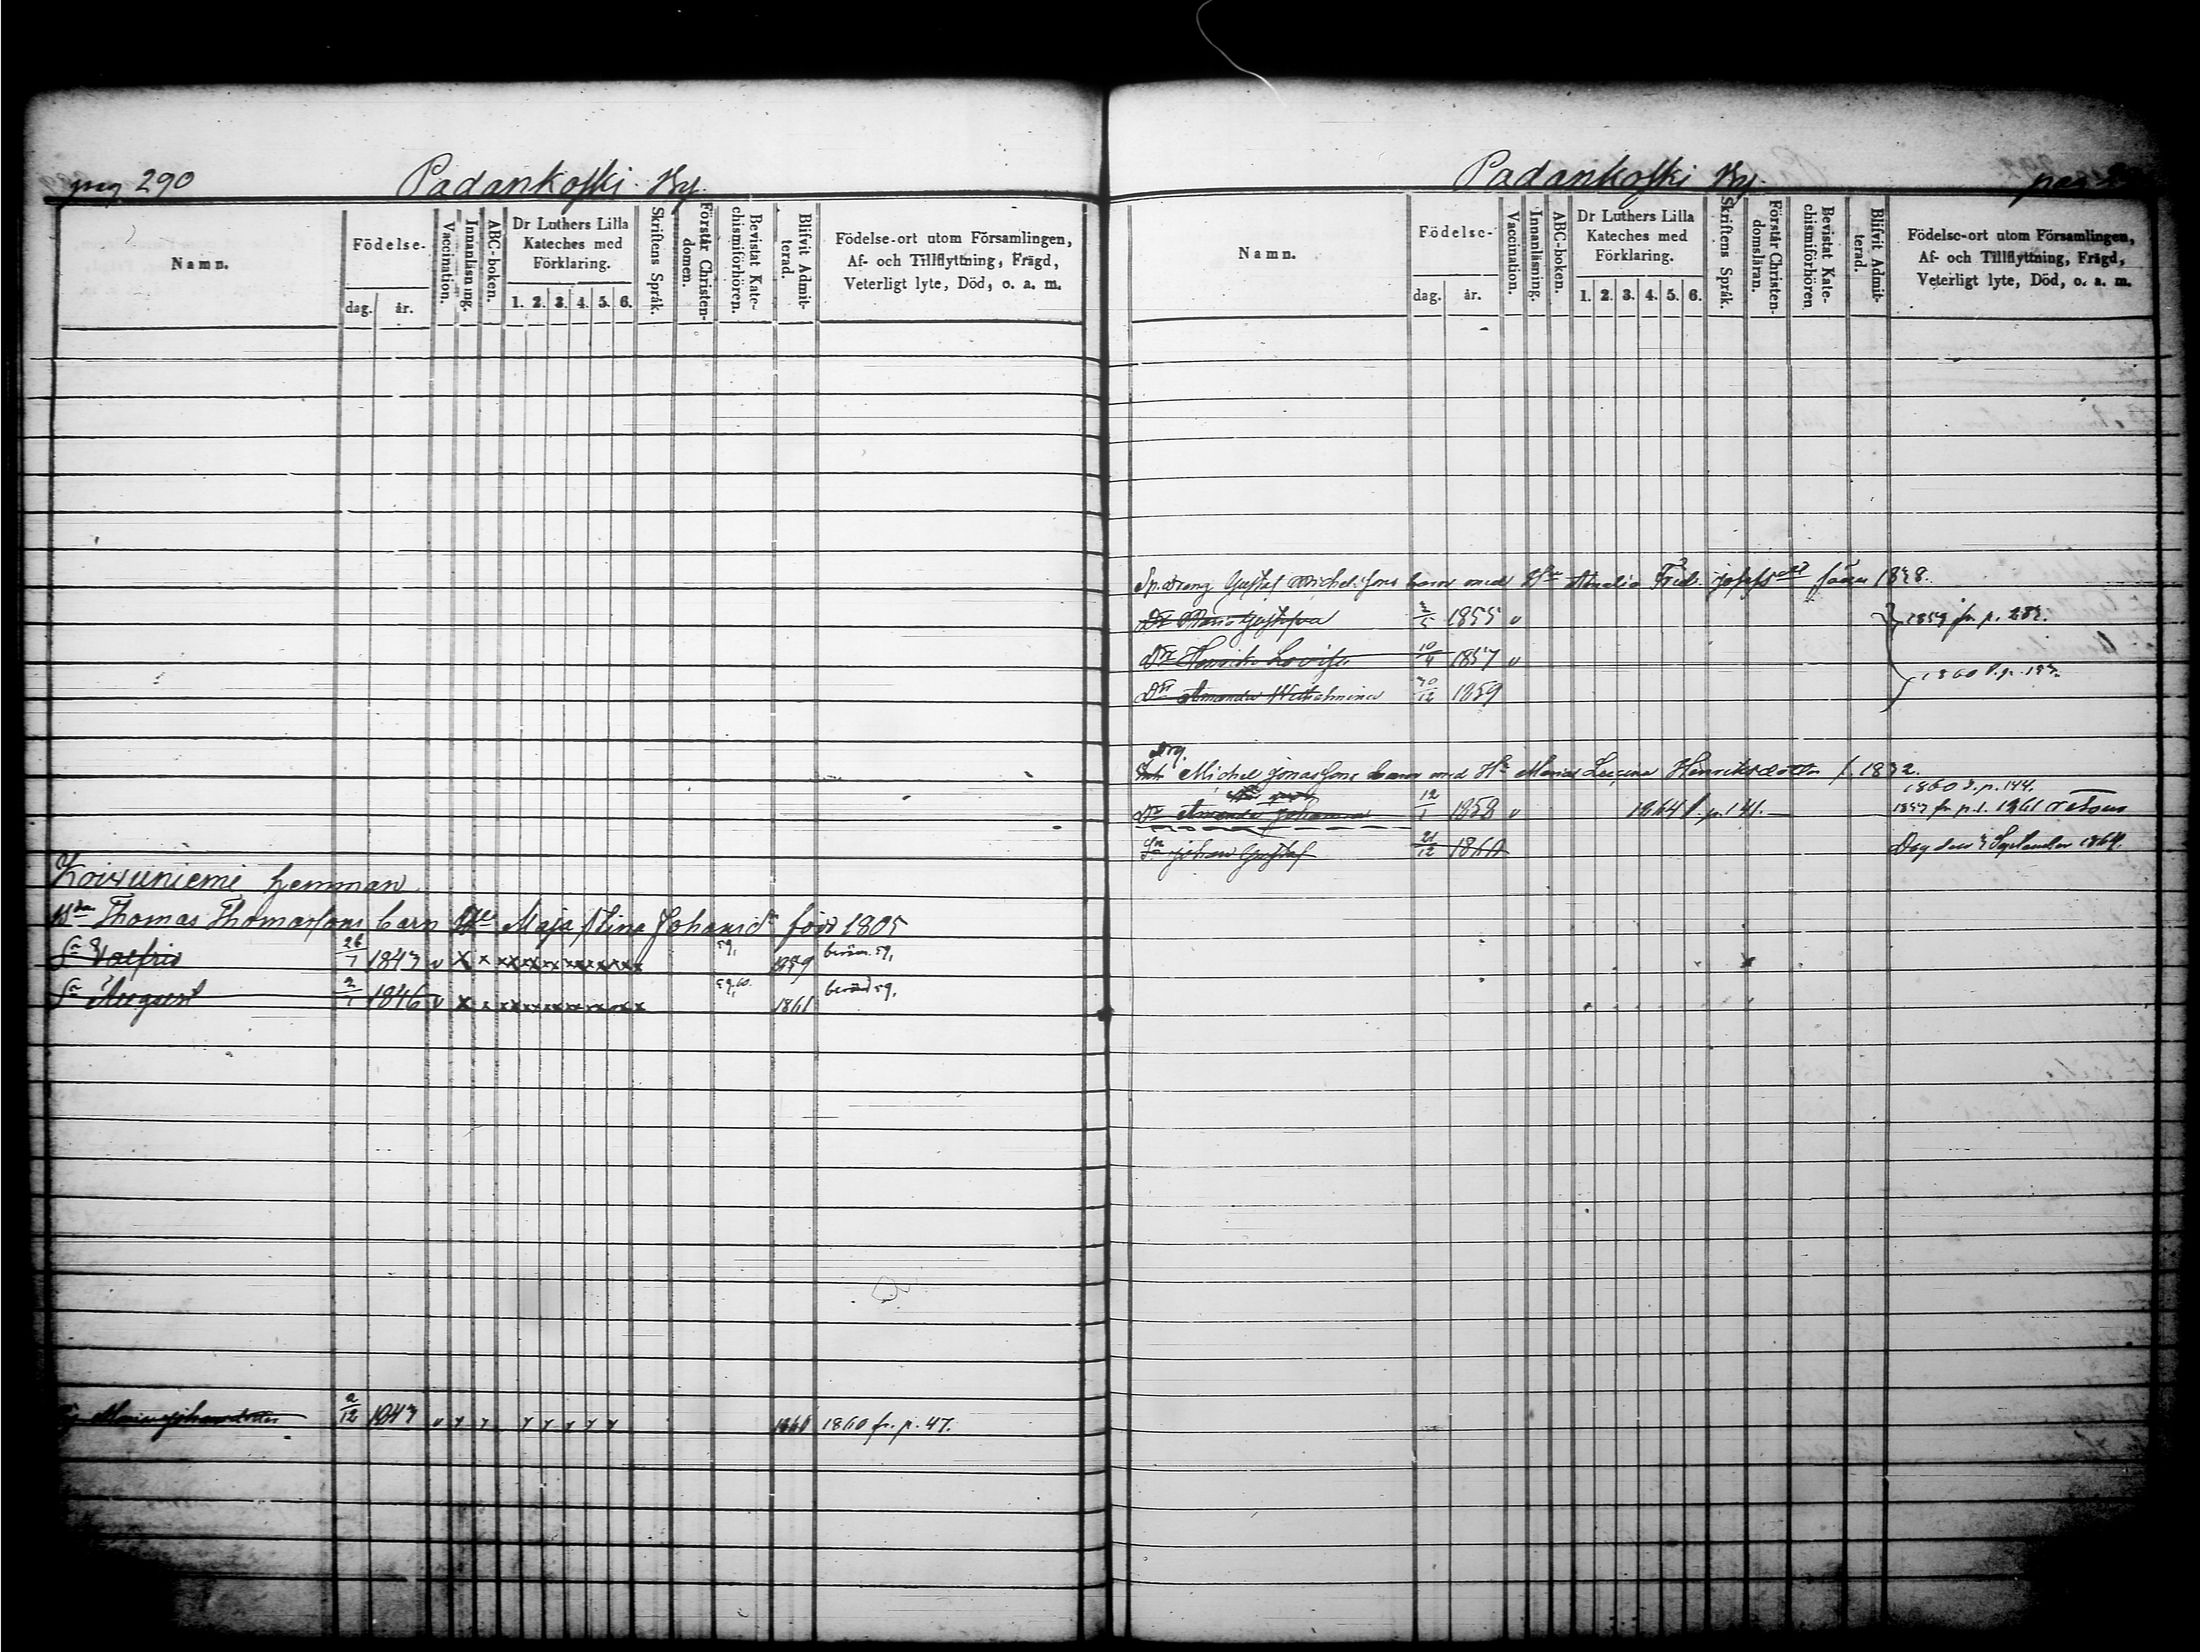 pag 290 Padankoski By.
Namn. Födelse- dag. år. Vaccination. Innanläsning. ABC-boken. Dr Luthers Lilla Kateches med Förklaring. 1. 2. 3. 4. 5. 6. Skriftens Språk. Förstår Christendomen. Bevistat Katechismiförhören. Blifvit Admitterad. Födelse-ort utom Församlingen, Af- och Tillflyttning, Frägd, Veterligt lyte, Död, o. a. m.
Koivuniemi hemman.
Thomas Thomassons barn Maja Stina Johansdr född 1805
Sn Valfrid 26/7 1843 v x x xxxxxxxxxxxx 59, 1859 59,
Sn August 2/7 1846 v x x xxxxxxxxxxxx 59,60. 1861 59.
Maria Johansdotter 2/12 1843 v 1860 fr. p. 47.
Padankoski By. pag
Namn. Födelse- dag. år. Vaccination. Innanläsning. ABC-boken. Dr Luthers Lilla Kateches med Förklaring. 1. 2. 3. 4. 5. 6. Skriftens Språk. Förstår Christendomsläran. Bevistat Katechismiförhören. Blifvit Admitterad. Födelse-ort utom Församlingen, Af- och Tillflyttning, Frägd, Veterligt lyte, Död, o. a. m.
Gustaf Michelssons barn med Hu Amalia Fred. Josefsdr
Dr Maria Gustafva 1855 v 1859 fr p.
Dr Henrika Lovisa 10/4 1857 v
Dr Amanda Wilhelmina 30/12 1859 1860
Drg.
Michel Jonassons barn med Hu Maria Henriksdotter f. 1832.
1860 p. 144.
Dr Amanda Johanna 12/1 1858 v 1864 p. 141. 1861
Sn Johan Gustaf 21/12 1860 Dog den September 1864.